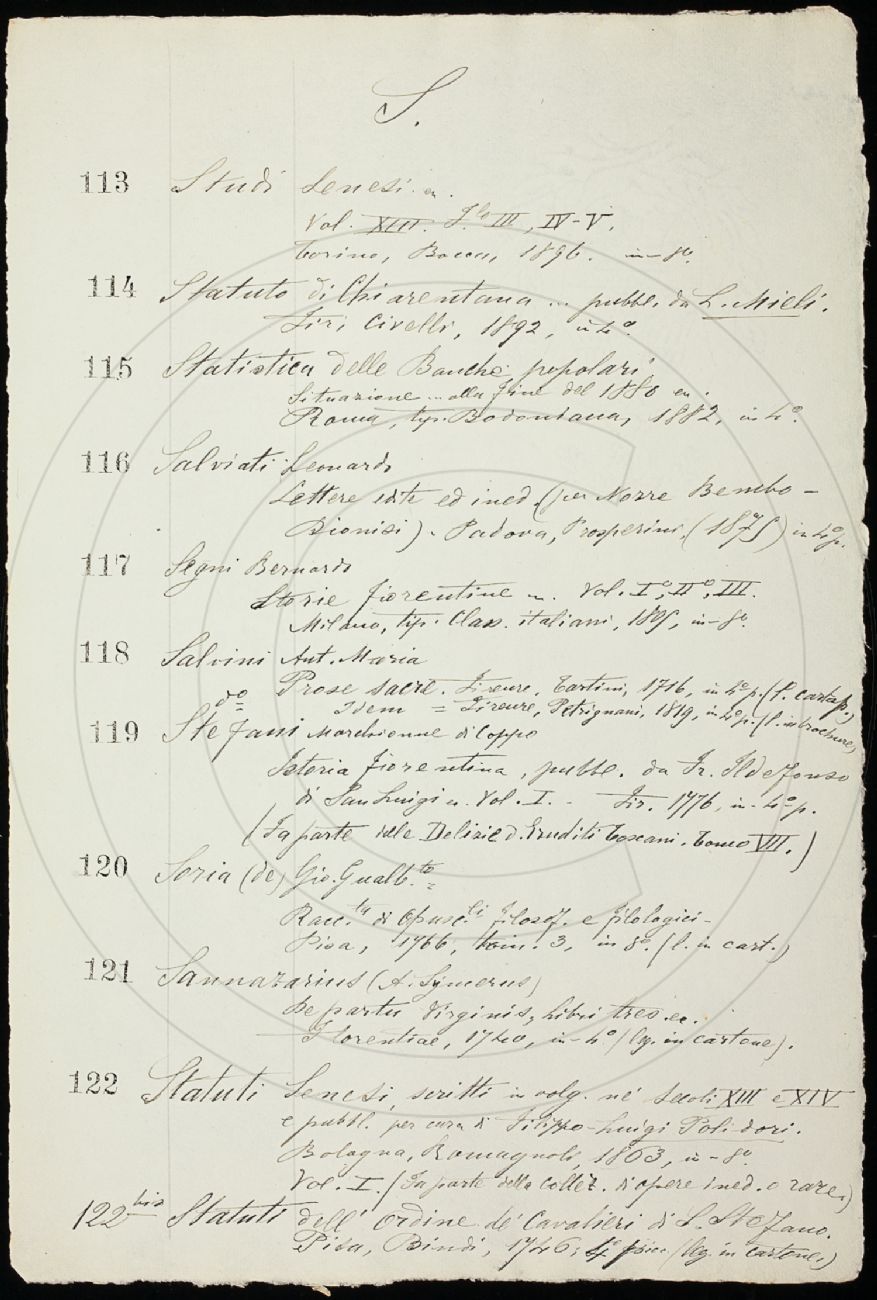 S.
113 Studi Senesi ec.
Vol. XIII. F.lo III, IV-V.
Torino, Bocca, 1896. in-8º.
114 Statuto di Chiarentana ... pubbl. da L. Mieli.
Fir; Civelli, 1892, in 4º.
115 Statistica delle Banche popolari
Situazione ... alla fine del 1880 ec.
Roma, tip. Bodoniana, 1882, in 4º.
116 Salviati Leonardo
Lettere edite ed ined. (per Nozze Bembo-
Dionisi). Padova, Prosperini, (1875) in 4º p.
117 Segni Bernardo
Storie fiorentine ec. Vol. Iº, IIº, III.
Milano, tip. Class. italiani, 1805, in-8º.
118 Salvini Ant. Maria
Prose sacre. Firenze, Tartini, 1716, in 4º p. (l. cartap.)
dº = Idem = Firenze, Petrignani, 1819, in 4º p. (l. in brochure)
119 Stefani Marchionne di Coppo
Istoria fiorentina, pubbl. da Fr. Ildefonso
di San Luigi ec. Vol. I. - Fir. 1776, in-4º p.
(Fa parte delle Delizie d. Eruditi Toscani. Tomo VII.)
120 Soria (de) Gio. Gualb.to =
Racc.ta di Opusc.li filosof. e filologici-
Pisa, 1766, tom. 3, in 8º. (l. in cart.)
121 Sannazarius (A. Syncerus)
De partu Virginis, Libri tres ec.
Florentiae, 1740, in-4º (leg. in cartone).
122 Statuti Senesi, scritti in volg. ne' Secoli XIII e XIV
e pubbl. per cura di Filippo-Luigi Polidori.
Bologna, Romagnoli, 1863, in-8º
Vol. I. (Fa parte della Collez. di opere ined. o rare.)
122 bis Statuti dell'Ordine de' Cavalieri di S. Stefano.
Pisa, Bindi, 1746; 4º (leg. in cartone.)